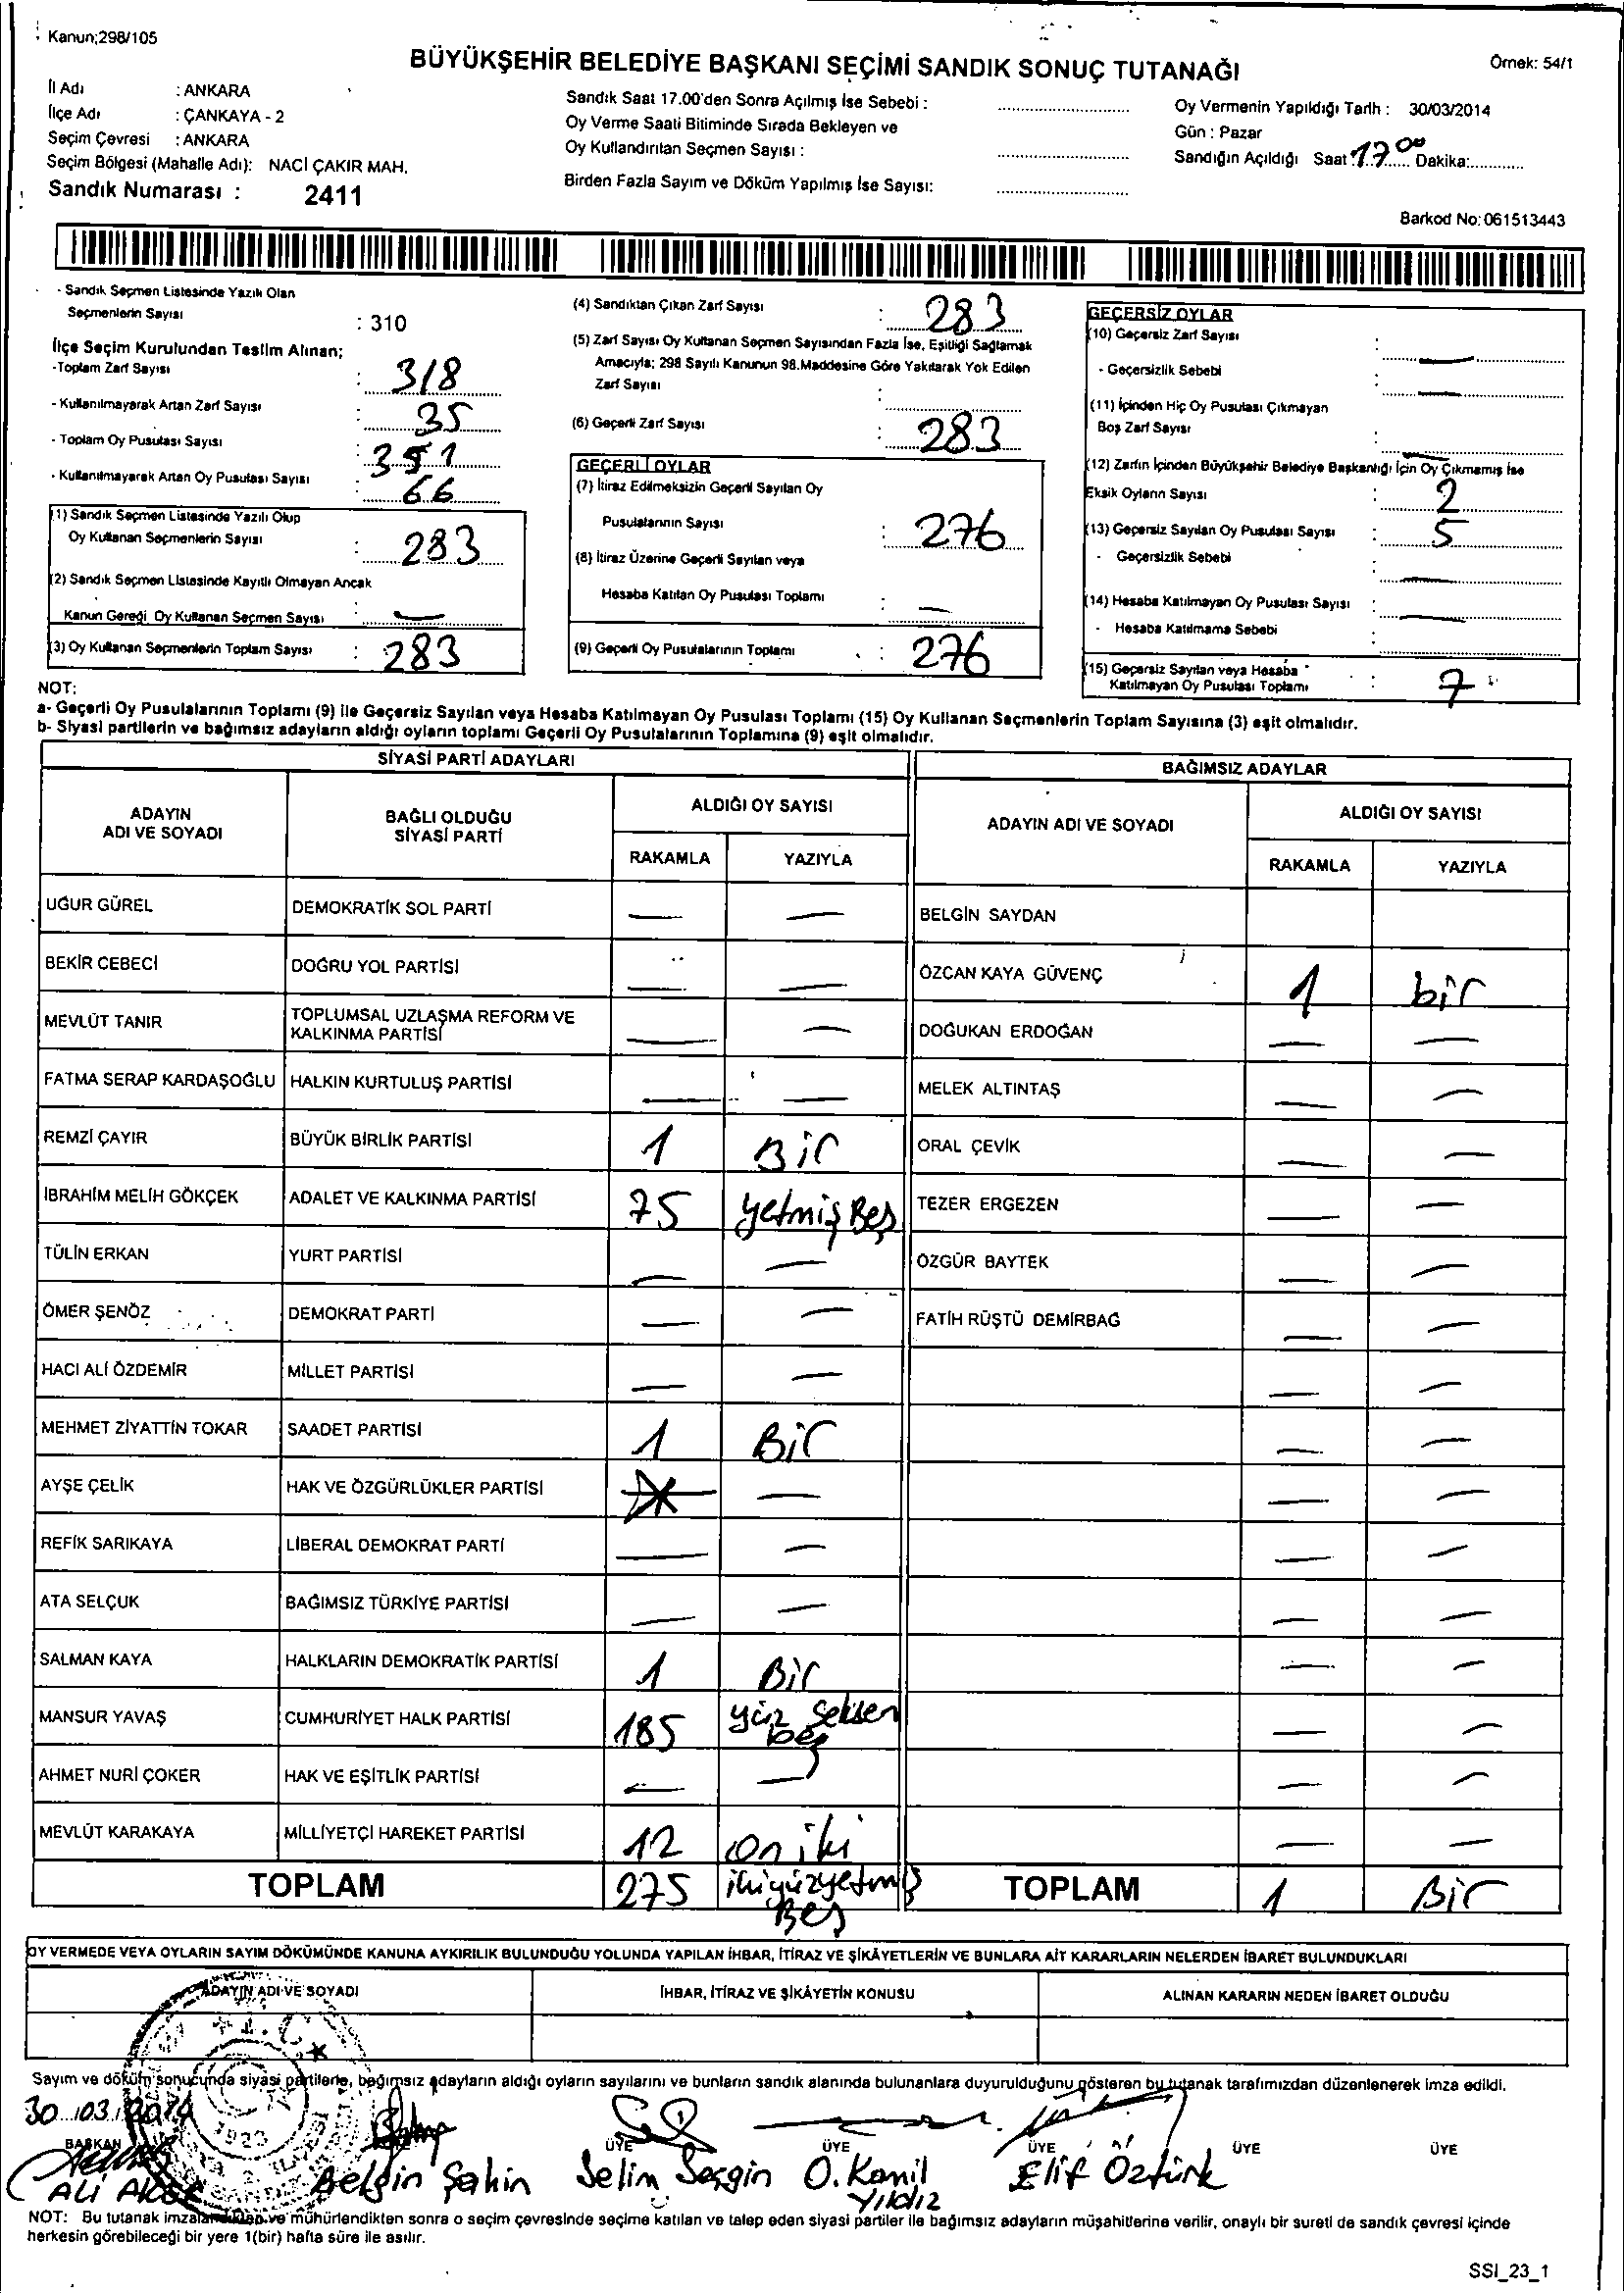 Kanun;298/105
BÜYÜKŞEHİR BELEDİYE BAŞKANI SEÇİMİ SANDIK SONUÇ TUTANAĞI
Örnek: 54/1
İl Adı : ANKARA
İlçe Adı : ÇANKAYA - 2
Seçim Çevresi : ANKARA
Seçim Bölgesi (Mahalle Adı): NACİ ÇAKIR MAH.
Sandık Numarası : 2411
Sandık Saat 17.00'den Sonra Açılmış İse Sebebi :
Oy Verme Saati Bitiminde Sırada Bekleyen ve
Oy Kullandırılan Seçmen Sayısı :
Birden Fazla Sayım ve Döküm Yapılmış İse Sayısı:
Oy Vermenin Yapıldığı Tarih : 30/03/2014
Gün : Pazar
Sandığın Açıldığı Saat 17.00 Dakika:
Barkod No: 061513443
- Sandık Seçmen Listesinde Yazılı Olan
Seçmenlerin Sayısı : 310
İlçe Seçim Kurulundan Teslim Alınan;
-Toplam Zarf Sayısı : 318
- Kullanılmayarak Artan Zarf Sayısı : 35
- Toplam Oy Pusulası Sayısı : 351
- Kullanılmayarak Artan Oy Pusulası Sayısı : 66
(1) Sandık Seçmen Listesinde Yazılı Olup
Oy Kullanan Seçmenlerin Sayısı : 283
(2) Sandık Seçmen Listesinde Kayıtlı Olmayan Ancak
Kanun Gereği Oy Kullanan Seçmen Sayısı : —
(3) Oy Kullanan Seçmenlerin Toplam Sayısı : 283
(4) Sandıktan Çıkan Zarf Sayısı : 283
(5) Zarf Sayısı Oy Kullanan Seçmen Sayısından Fazla İse, Eşitliği Sağlamak
Amacıyla; 298 Sayılı Kanunun 98.Maddesine Göre Yakılarak Yok Edilen
Zarf Sayısı :
(6) Geçerli Zarf Sayısı : 283
GEÇERLİ OYLAR
(7) İtiraz Edilmeksizin Geçerli Sayılan Oy
Pusulalarının Sayısı : 276
(8) İtiraz Üzerine Geçerli Sayılan veya
Hesaba Katılan Oy Pusulası Toplamı : —
(9) Geçerli Oy Pusulalarının Toplamı : 276
GEÇERSİZ OYLAR
(10) Geçersiz Zarf Sayısı : —
- Geçersizlik Sebebi : —
(11) İçinden Hiç Oy Pusulası Çıkmayan
Boş Zarf Sayısı : —
(12) Zarfın İçinden Büyükşehir Belediye Başkanlığı İçin Oy Çıkmamış İse
Eksik Oyların Sayısı : 2
(13) Geçersiz Sayılan Oy Pusulası Sayısı : 5
- Geçersizlik Sebebi : —
(14) Hesaba Katılmayan Oy Pusulası Sayısı : —
- Hesaba Katılmama Sebebi :
(15) Geçersiz Sayılan veya Hesaba
Katılmayan Oy Pusulası Toplamı : 7
NOT:
a- Geçerli Oy Pusulalarının Toplamı (9) ile Geçersiz Sayılan veya Hesaba Katılmayan Oy Pusulası Toplamı (15) Oy Kullanan Seçmenlerin Toplam Sayısına (3) eşit olmalıdır.
b- Siyasi partilerin ve bağımsız adayların aldığı oyların toplamı Geçerli Oy Pusulalarının Toplamına (9) eşit olmalıdır.
SİYASİ PARTİ ADAYLARI
ADAYIN ADI VE SOYADI
BAĞLI OLDUĞU SİYASİ PARTİ
ALDIĞI OY SAYISI
RAKAMLA YAZIYLA
UĞUR GÜREL DEMOKRATİK SOL PARTİ — —
BEKİR CEBECİ DOĞRU YOL PARTİSİ — —
MEVLÜT TANIR TOPLUMSAL UZLAŞMA REFORM VE KALKINMA PARTİSİ — —
FATMA SERAP KARDAŞOĞLU HALKIN KURTULUŞ PARTİSİ — —
REMZİ ÇAYIR BÜYÜK BİRLİK PARTİSİ 1 Bir
İBRAHİM MELİH GÖKÇEK ADALET VE KALKINMA PARTİSİ 75 yetmiş Beş
TÜLİN ERKAN YURT PARTİSİ — —
ÖMER ŞENÖZ DEMOKRAT PARTİ — —
HACI ALİ ÖZDEMİR MİLLET PARTİSİ — —
MEHMET ZİYATTİN TOKAR SAADET PARTİSİ 1 Bir
AYŞE ÇELİK HAK VE ÖZGÜRLÜKLER PARTİSİ —
REFİK SARIKAYA LİBERAL DEMOKRAT PARTİ — —
ATA SELÇUK BAĞIMSIZ TÜRKİYE PARTİSİ — —
SALMAN KAYA HALKLARIN DEMOKRATİK PARTİSİ 1 Bir
MANSUR YAVAŞ CUMHURİYET HALK PARTİSİ 185 yüz seksen beş
AHMET NURİ ÇOKER HAK VE EŞİTLİK PARTİSİ — —
MEVLÜT KARAKAYA MİLLİYETÇİ HAREKET PARTİSİ 12 on iki
TOPLAM 275 ikiyüzyetmiş Beş
BAĞIMSIZ ADAYLAR
ADAYIN ADI VE SOYADI
ALDIĞI OY SAYISI
RAKAMLA YAZIYLA
BELGİN SAYDAN
ÖZCAN KAYA GÜVENÇ 1 bir
DOĞUKAN ERDOĞAN — —
MELEK ALTINTAŞ — —
ORAL ÇEVİK — —
TEZER ERGEZEN — —
ÖZGÜR BAYTEK — —
FATİH RÜŞTÜ DEMİRBAĞ — —
TOPLAM 1 Bir
OY VERMEDE VEYA OYLARIN SAYIM DÖKÜMÜNDE KANUNA AYKIRILIK BULUNDUĞU YOLUNDA YAPILAN İHBAR, İTİRAZ VE ŞİKÂYETLERİN VE BUNLARA AİT KARARLARIN NELERDEN İBARET BULUNDUKLARI
ADAYIN ADI VE SOYADI
İHBAR, İTİRAZ VE ŞİKÂYETİN KONUSU
ALINAN KARARIN NEDEN İBARET OLDUĞU
Sayım ve döküm sonucunda siyasi partilerle, bağımsız adayların aldığı oyların sayılarını ve bunların sandık alanında bulunanlara duyurulduğunu gösteren bu tutanak tarafımızdan düzenlenerek imza edildi.
30.03.2014
BAŞKAN ÜYE ÜYE ÜYE ÜYE ÜYE
ALİ
Belgin Şahin
Selim Sezgin
O.Kamil Yıldız
Elif Öztürk
NOT: Bu tutanak imzalandıktan ve mühürlendikten sonra o seçim çevresinde seçime katılan ve talep eden siyasi partiler ile bağımsız adayların müşahitlerine verilir, onaylı bir sureti de sandık çevresi içinde
herkesin görebileceği bir yere 1(bir) hafta süre ile asılır.
SSI_23_1